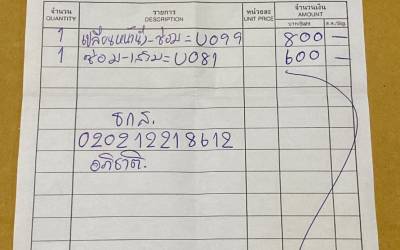 จำนวน รายการ หน่วยละ จำนวนเงิน
QUANTITY DESCRIPTION UNIT PRICE AMOUNT
บาท/Baht ส.ต./Stg.
1 เปลี่ยนหน้า-ซ่อม = U099 800 —
1 ซ่อม-เสริม = U081 600 —
ธกส.
020212218612
อภิชาติ.